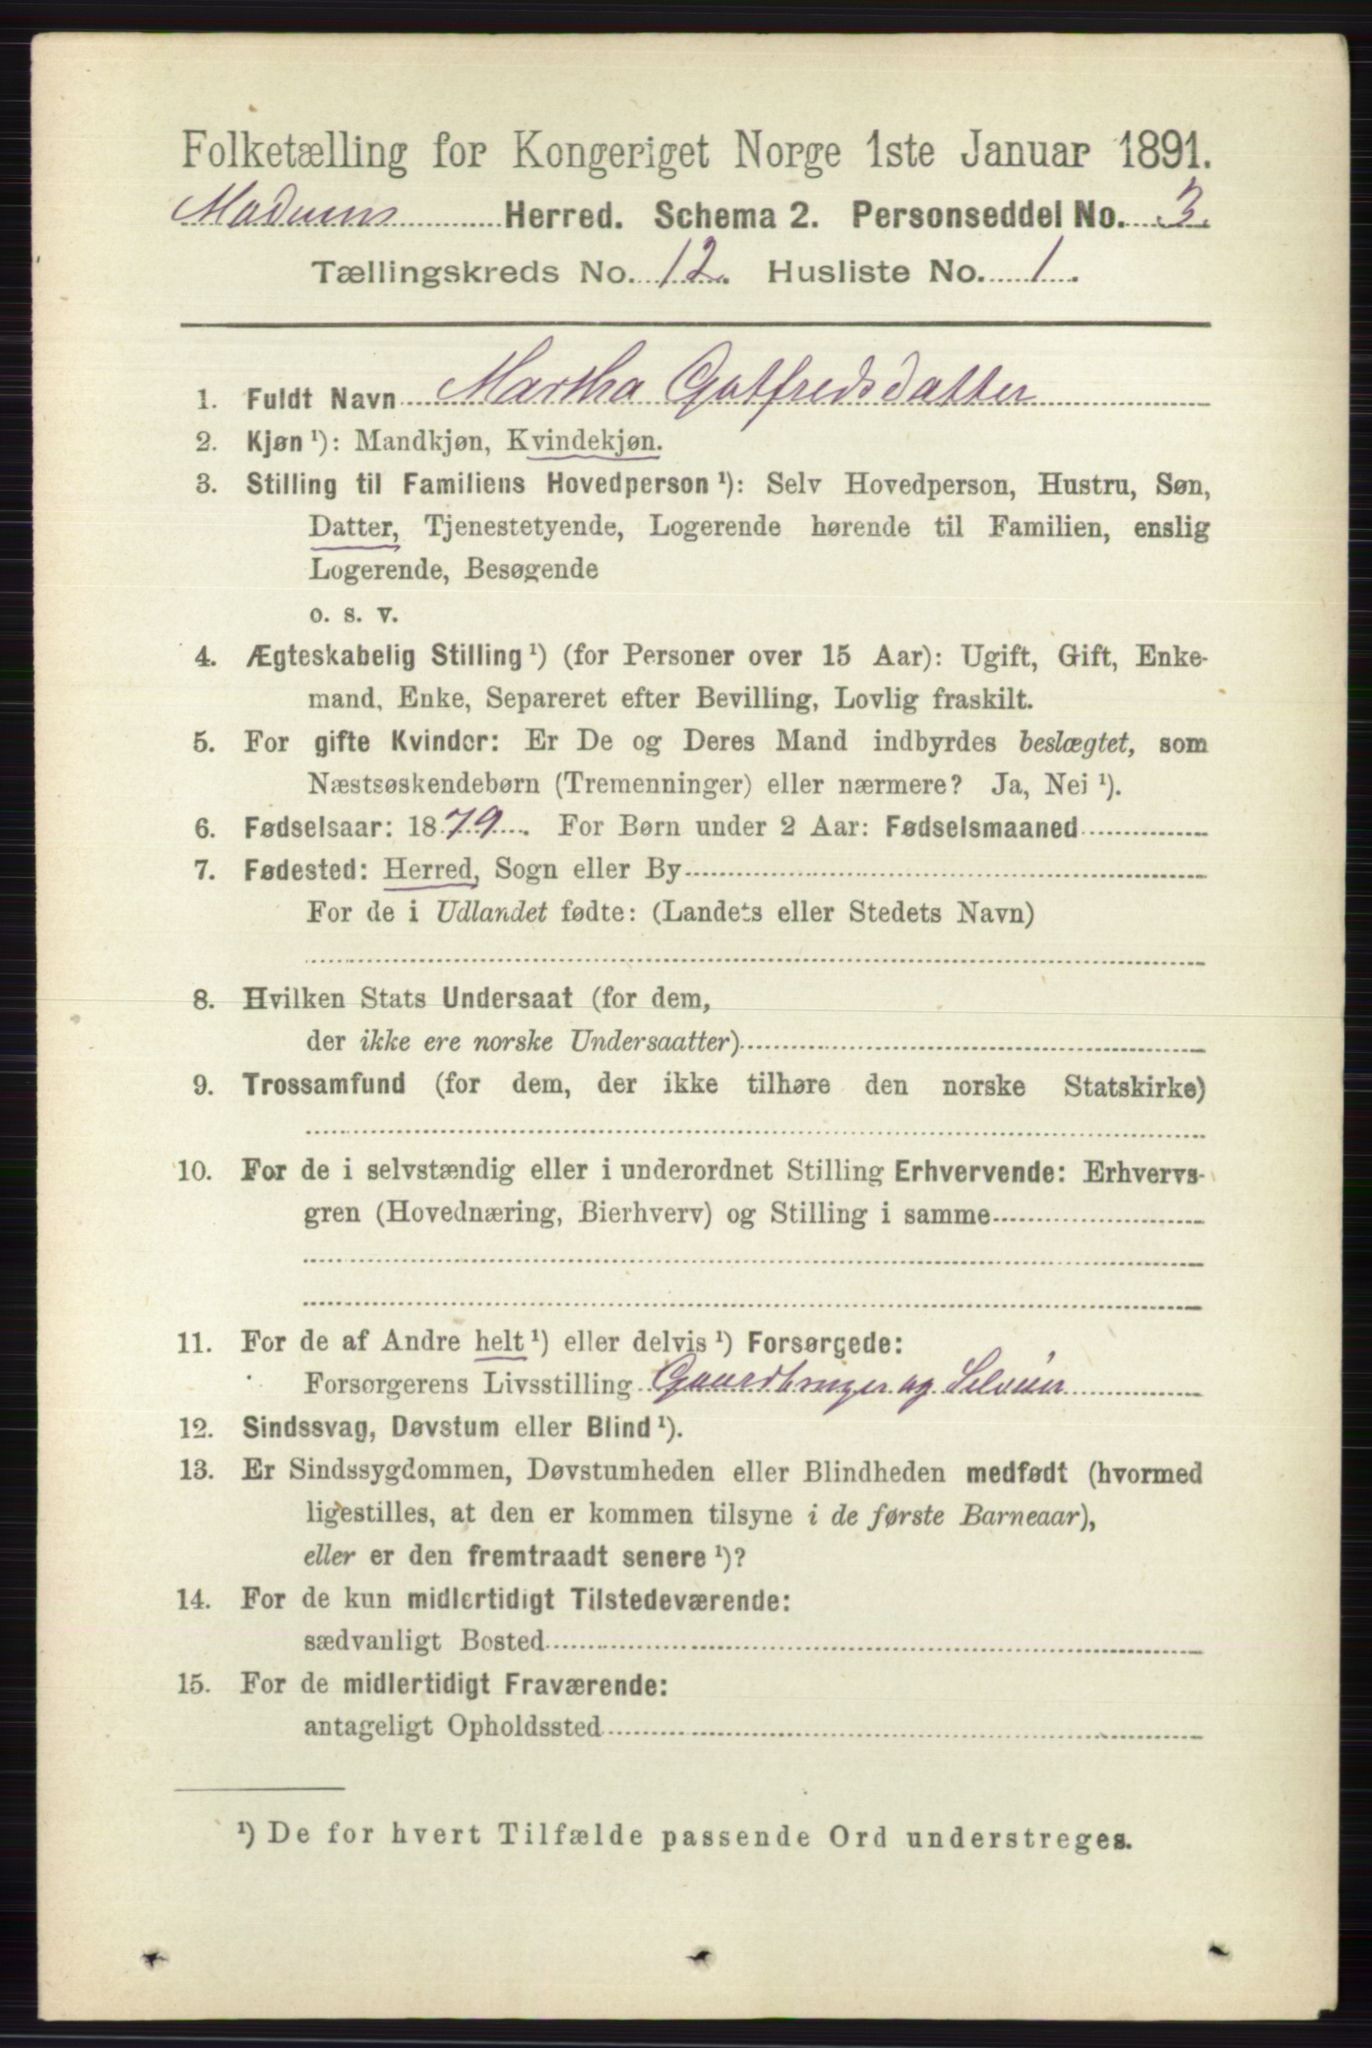 Folketælling for Kongeriget Norge 1ste Januar 1891.
Modums Herred. Schema 2. Personseddel No. 3.
Tællingskreds No. 12. Husliste No. 1.
1. Fuldt Navn Martha Gotfredsdatter
2. Kjøn ¹): Mandkjøn, Kvindekjøn.
3. Stilling til Familiens Hovedperson ¹): Selv Hovedperson, Hustru, Søn,
Datter, Tjenestetyende, Logerende hørende til Familien, enslig
Logerende, Besøgende
o. s. v.
4. Ægteskabelig Stilling ¹) (for Personer over 15 Aar): Ugift, Gift, Enke-
mand, Enke, Separeret efter Bevilling, Lovlig fraskilt.
5. For gifte Kvinder: Er De og Deres Mand indbyrdes beslægtet, som
Næstsøskendebørn (Tremenninger) eller nærmere? Ja, Nei ¹).
6. Fødselsaar: 1879. For Børn under 2 Aar: Fødselsmaaned
7. Fødested: Herred, Sogn eller By
For de i Udlandet fødte: (Landets eller Stedets Navn)
8. Hvilken Stats Undersaat (for dem,
der ikke ere norske Undersaatter)
9. Trossamfund (for dem, der ikke tilhøre den norske Statskirke)
10. For de i selvstændig eller i underordnet Stilling Erhvervende: Erhvervs-
gren (Hovednæring, Bierhverv) og Stilling i samme
11. For de af Andre helt ¹) eller delvis ¹) Forsørgede:
Forsørgerens Livsstilling Gaardbruger og Selveier
12. Sindssvag, Døvstum eller Blind ¹).
13. Er Sindssygdommen, Døvstumheden eller Blindheden medfødt (hvormed
ligestilles, at den er kommen tilsyne i de første Barneaar),
eller er den fremtraadt senere ¹)?
14. For de kun midlertidigt Tilstedeværende:
sædvanligt Bosted
15. For de midlertidigt Fraværende:
antageligt Opholdssted
¹) De for hvert Tilfælde passende Ord understreges.